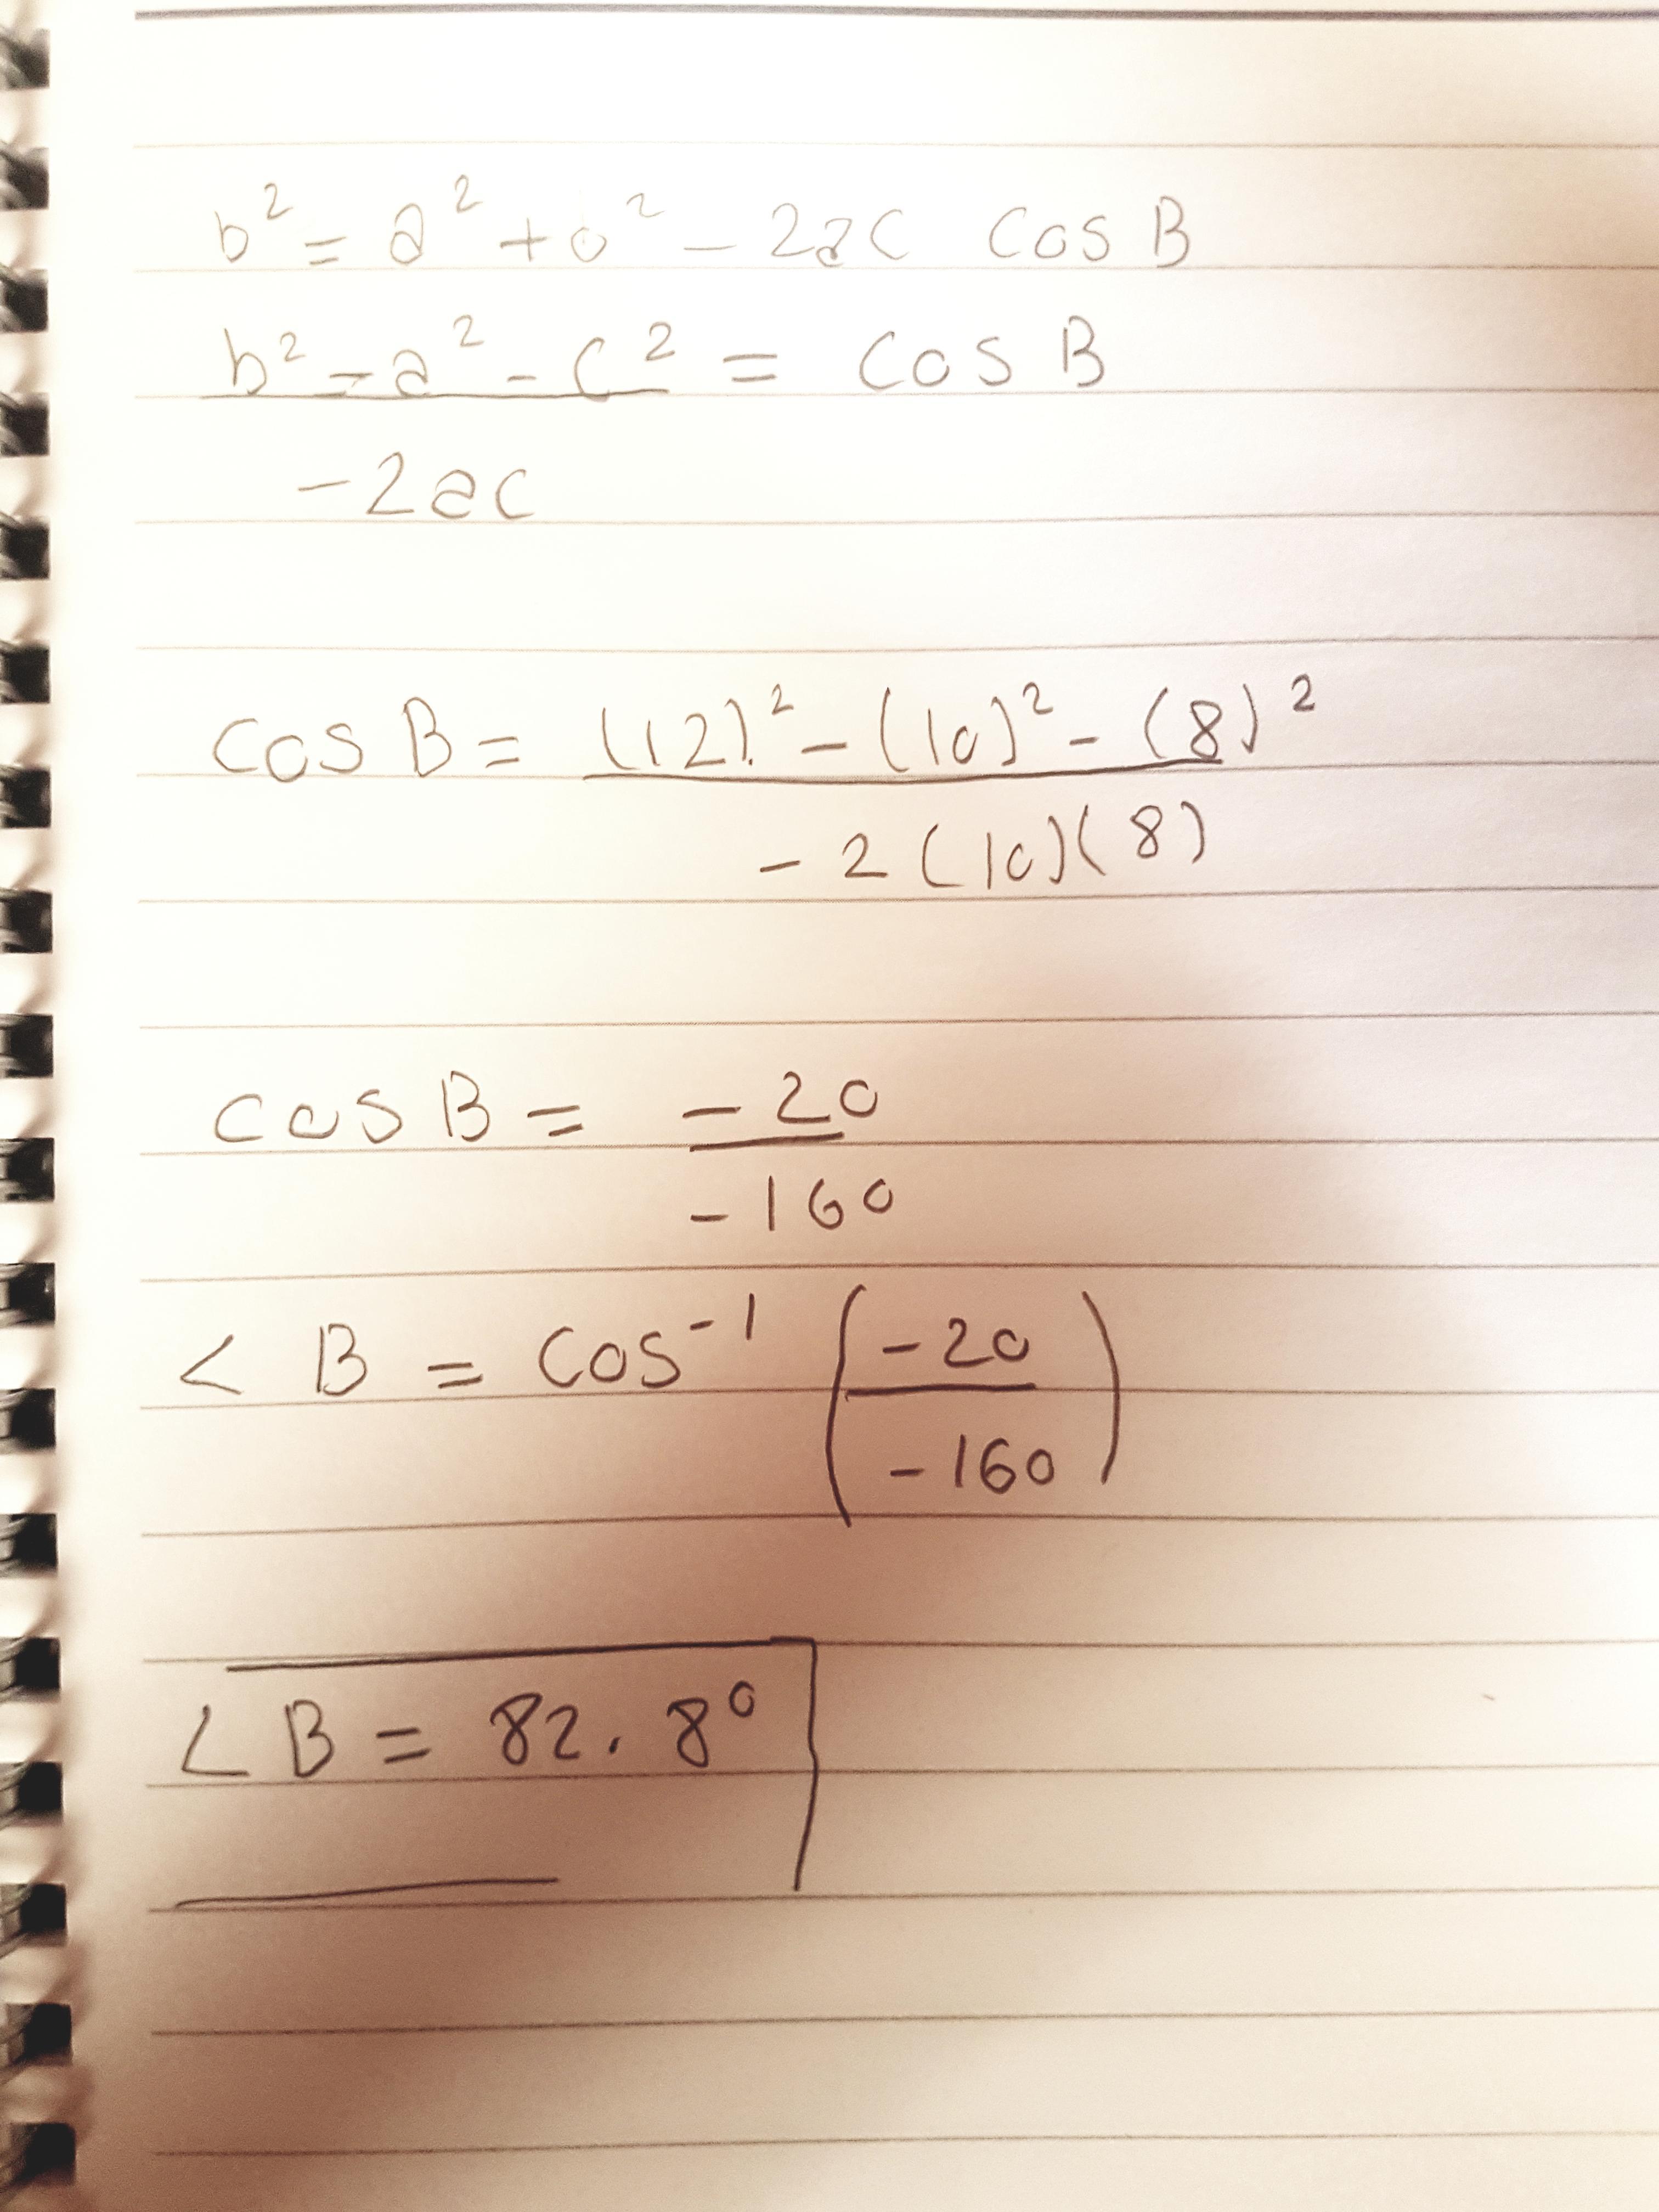 b² = a² + b² - 2ac cos B
b² - a² - c² = cos B
-2ac
cos B = (12)² - (10)² - (8)²
-2(10)(8)
cos B = -20
-160
< B = cos⁻¹ (-20
-160)
∠ B = 82.8°